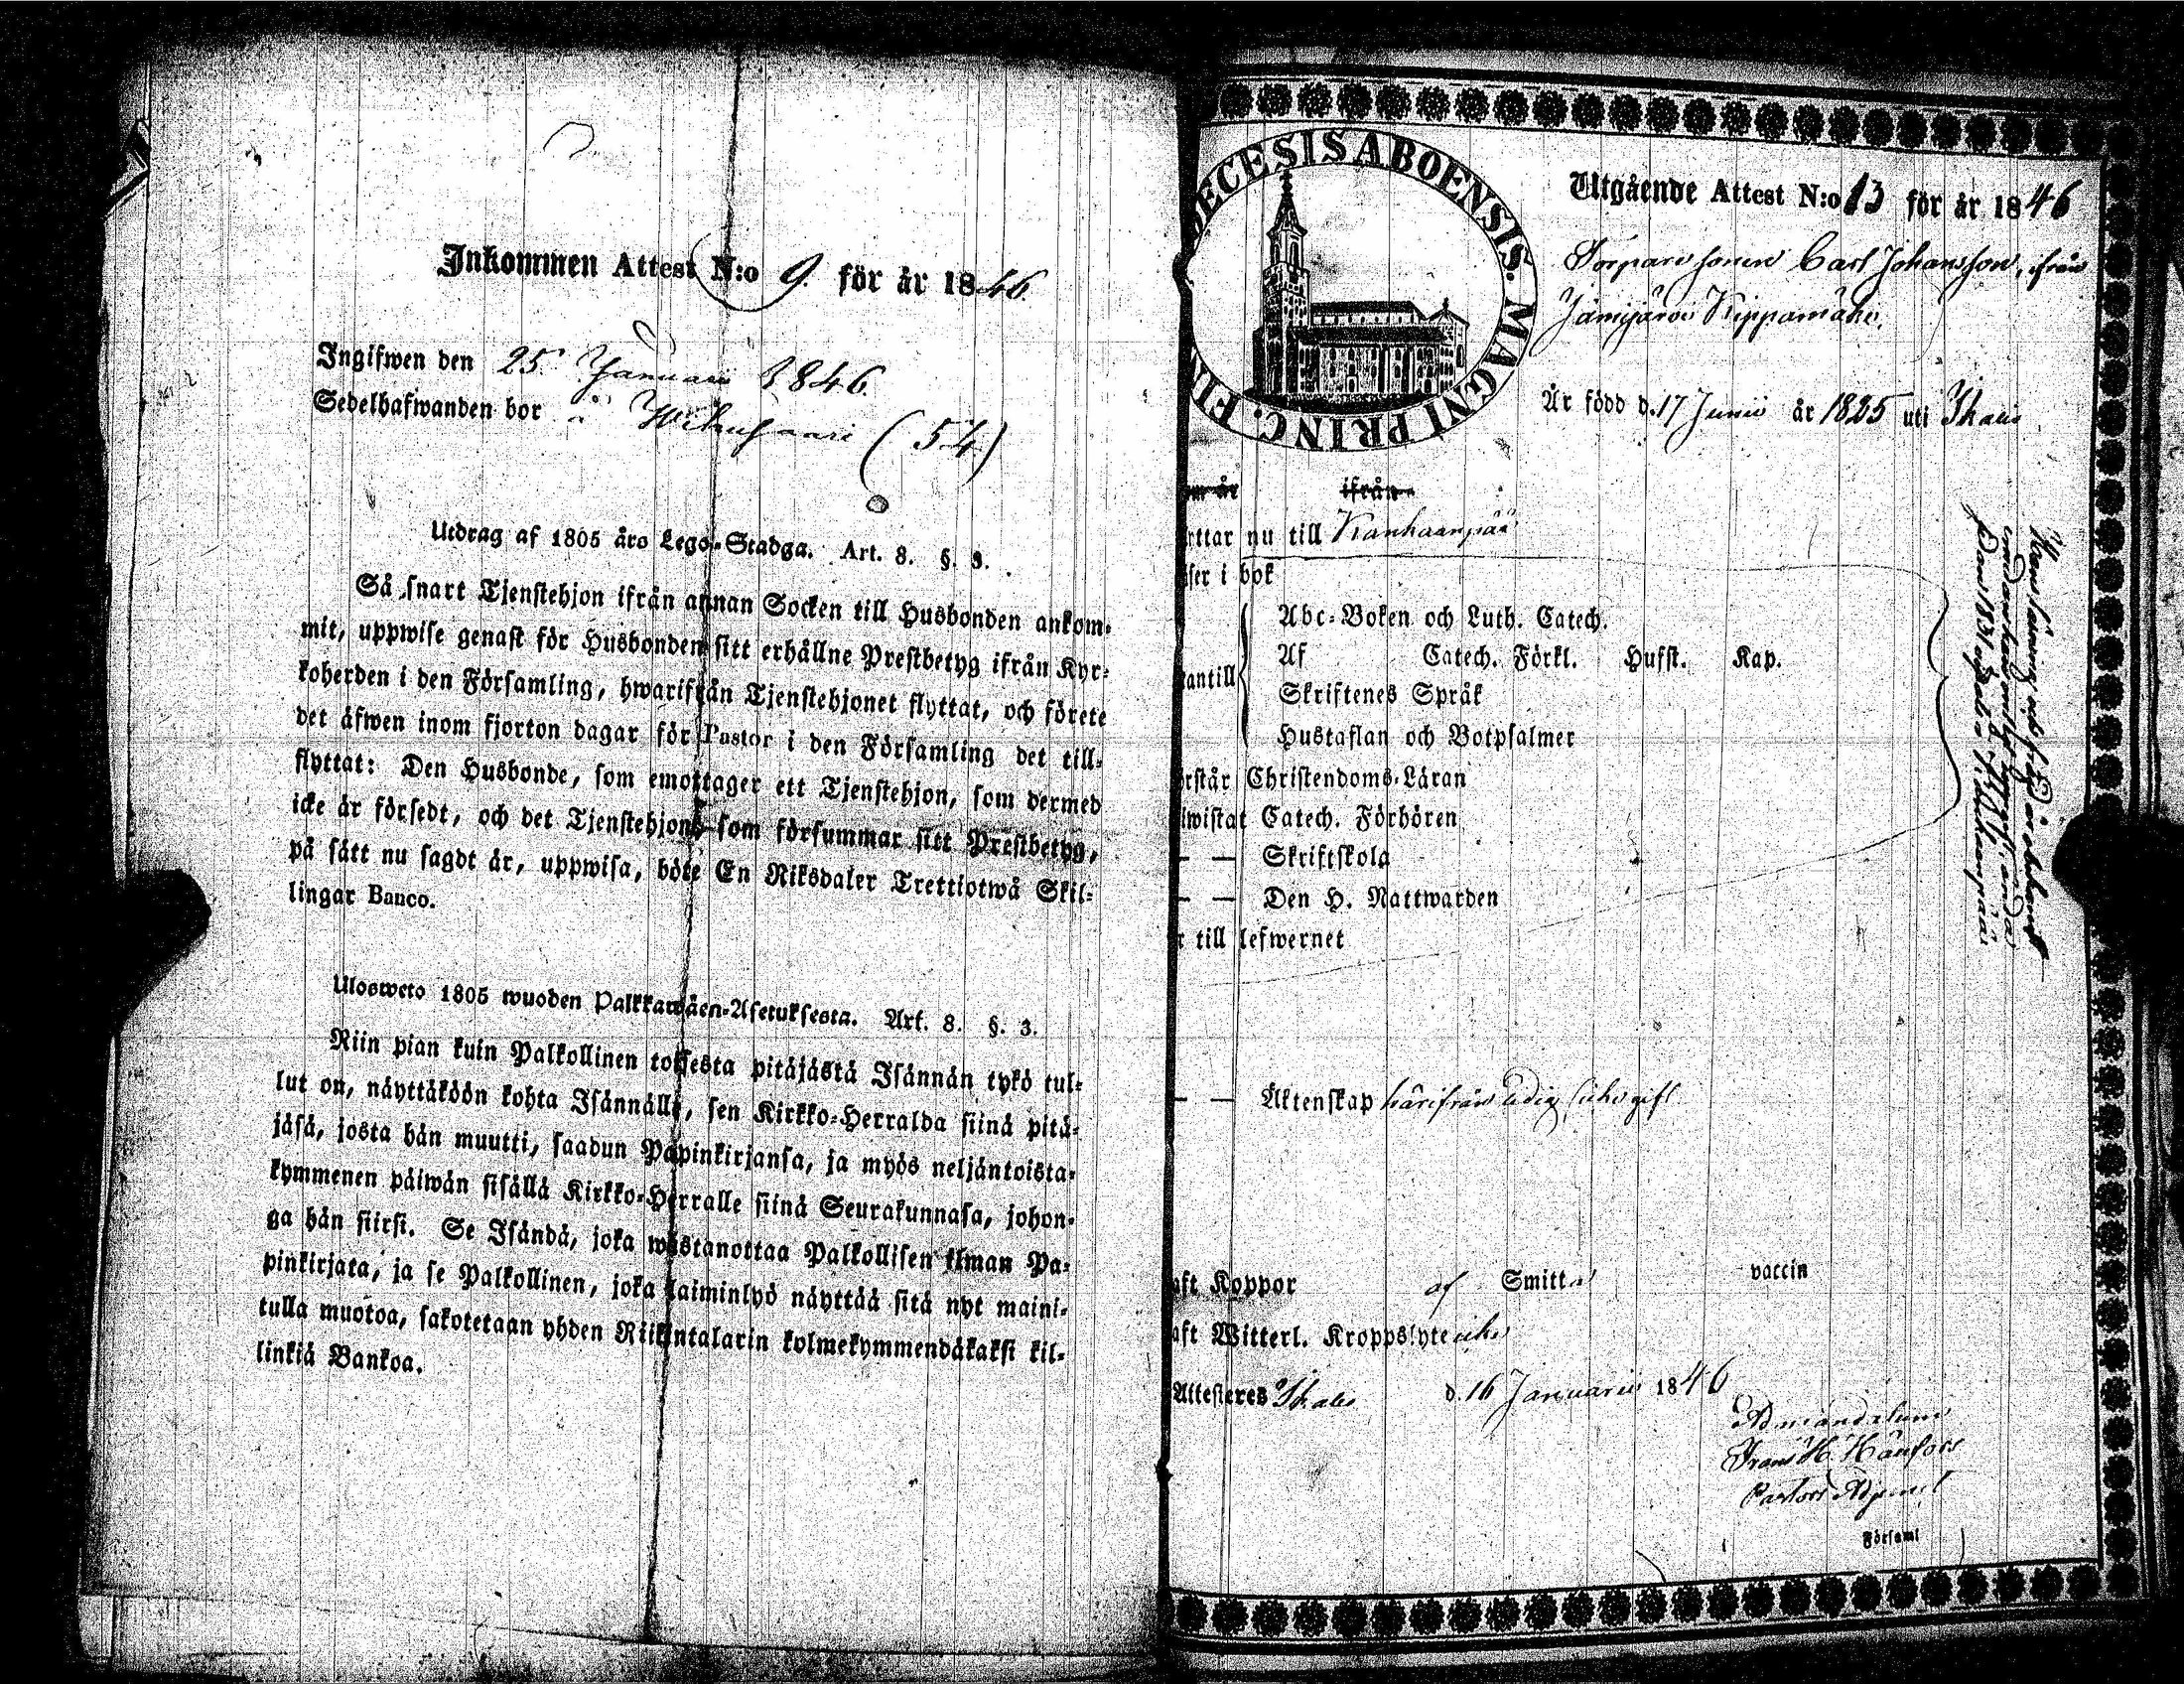 Inkommen Attest N:o 9. för år 1846.
Ingifwen den 25 Januarii 1846.
Sedelhafwanden bor å Wihusaari (54)
Utdrag af 1805 års Lego-Stadga. Art. 8. §. 3.
Så snart Tjenstehjon ifrån annan Socken till Husbonden ankom-
mit, uppwise genast för Husbonden sitt erhållne Prestbetyg ifrån Kyr-
koherden i den Församling, hwarifrån Tjenstehjonet flyttat, och förete
det äfwen inom fjorton dagar för Pastor i den Församling det till-
flyttat: Den Husbonde, som emottager ett Tjenstehjon, som dermed
icke är försedt, och det Tjenstehjon, som försummar sitt Prestbetyg,
på sätt nu sagdt är, uppwisa, böte En Riksdaler Trettiotwå Skil-
lingar Banco.
Ulosweto 1805 wuoden Palkkawäen-Asetuksesta. Art. 8. §. 3.
Niin pian kuin Palkollinen toisesta pitäjästä Isännän tykö tul-
lut on, näyttäköön kohta Isännälle, sen Kirkko-Herralda siinä pitä-
jäsä, josta hän muutti, saadun Papinkirjansa, ja myös neljäntoista-
kymmenen päiwän sisällä Kirkko-Herralle siinä Seurakunnasa, johon-
ga hän siirsi. Se Isändä, joka wastanottaa Palkollisen ilman Pa-
pinkirjata, ja se Palkollinen, joka laiminlyö näyttää sitä nyt maini-
tulla muotoa, sakotetaan yhden Riikintalarin kolmekymmendäkaksi kil-
linkiä Bankoa.
ECESIS ABOENSIS. MAGNI PRINC. FIN
Utgående Attest N:o 13 för år 1846
Torpare sonen Carl Johansson, från
Jämijärvi Kippamäki,
Är född d. 17 Junii år 1825 uti Ikalis
om år ifrån
yttar nu till Kankaanpää
äser i bok
Abc-Boken och Luth. Catech.
Af Catech. Förkl. Husft. Kap.
tantill
Skriftenes Språk
Hustaflan och Botpsalmer
örstår Christendoms-Läran
iwistat Catech. Förhören
— — Skriftskola
— — Den H. Nattwarden
r till lefwernet
— — Äktenskap härifrån ledig
aft Koppor af Smitta vaccin
aft Witterl. Kroppslyte
Attesteres Ikalis d. 16 Januarii 1846
Ad mandatum
Frans H.
Pastors Adjunct
Församl